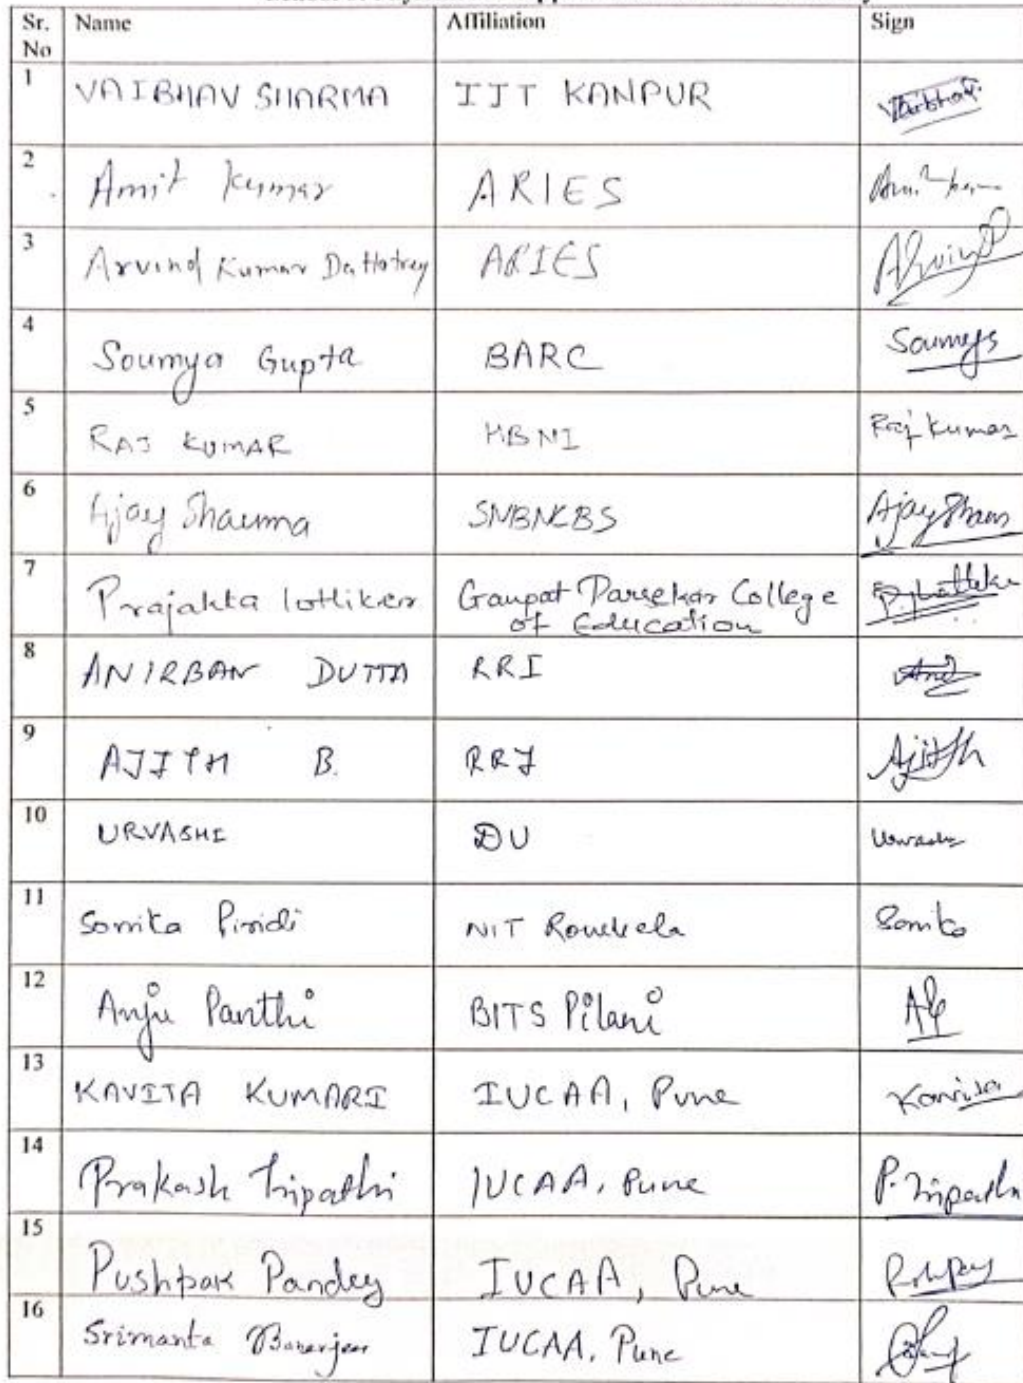 Sr. No Name Affiliation Sign
1 VAIBHAV SHARMA IIT KANPUR Vaibhav
2 Amit Kumar ARIES Amit Kumar
3 Arvind Kumar Dattatrey ARIES Arvind
4 Soumya Gupta BARC Soumya
5 RAJ KUMAR HBNI Raj Kumar
6 Ajay Sharma SNBNCBS Ajay Sharma
7 Prajakta lotliker Ganpat Parsekar College
of Education
8 ANIRBAN DUTTA RRI
9 AJITH B. RRI Ajith
10 URVASHI DU Urvashi
11 Somita NIT Rourkela
12 Anju Panthi BITS Pilani
13 KAVITA KUMARI IUCAA, Pune Kavita
14 Prakash Tripathi IUCAA, Pune P. Tripathi
15 Pushpak Pandey IUCAA, Pune
16 Srimanta Banerjee IUCAA, Pune